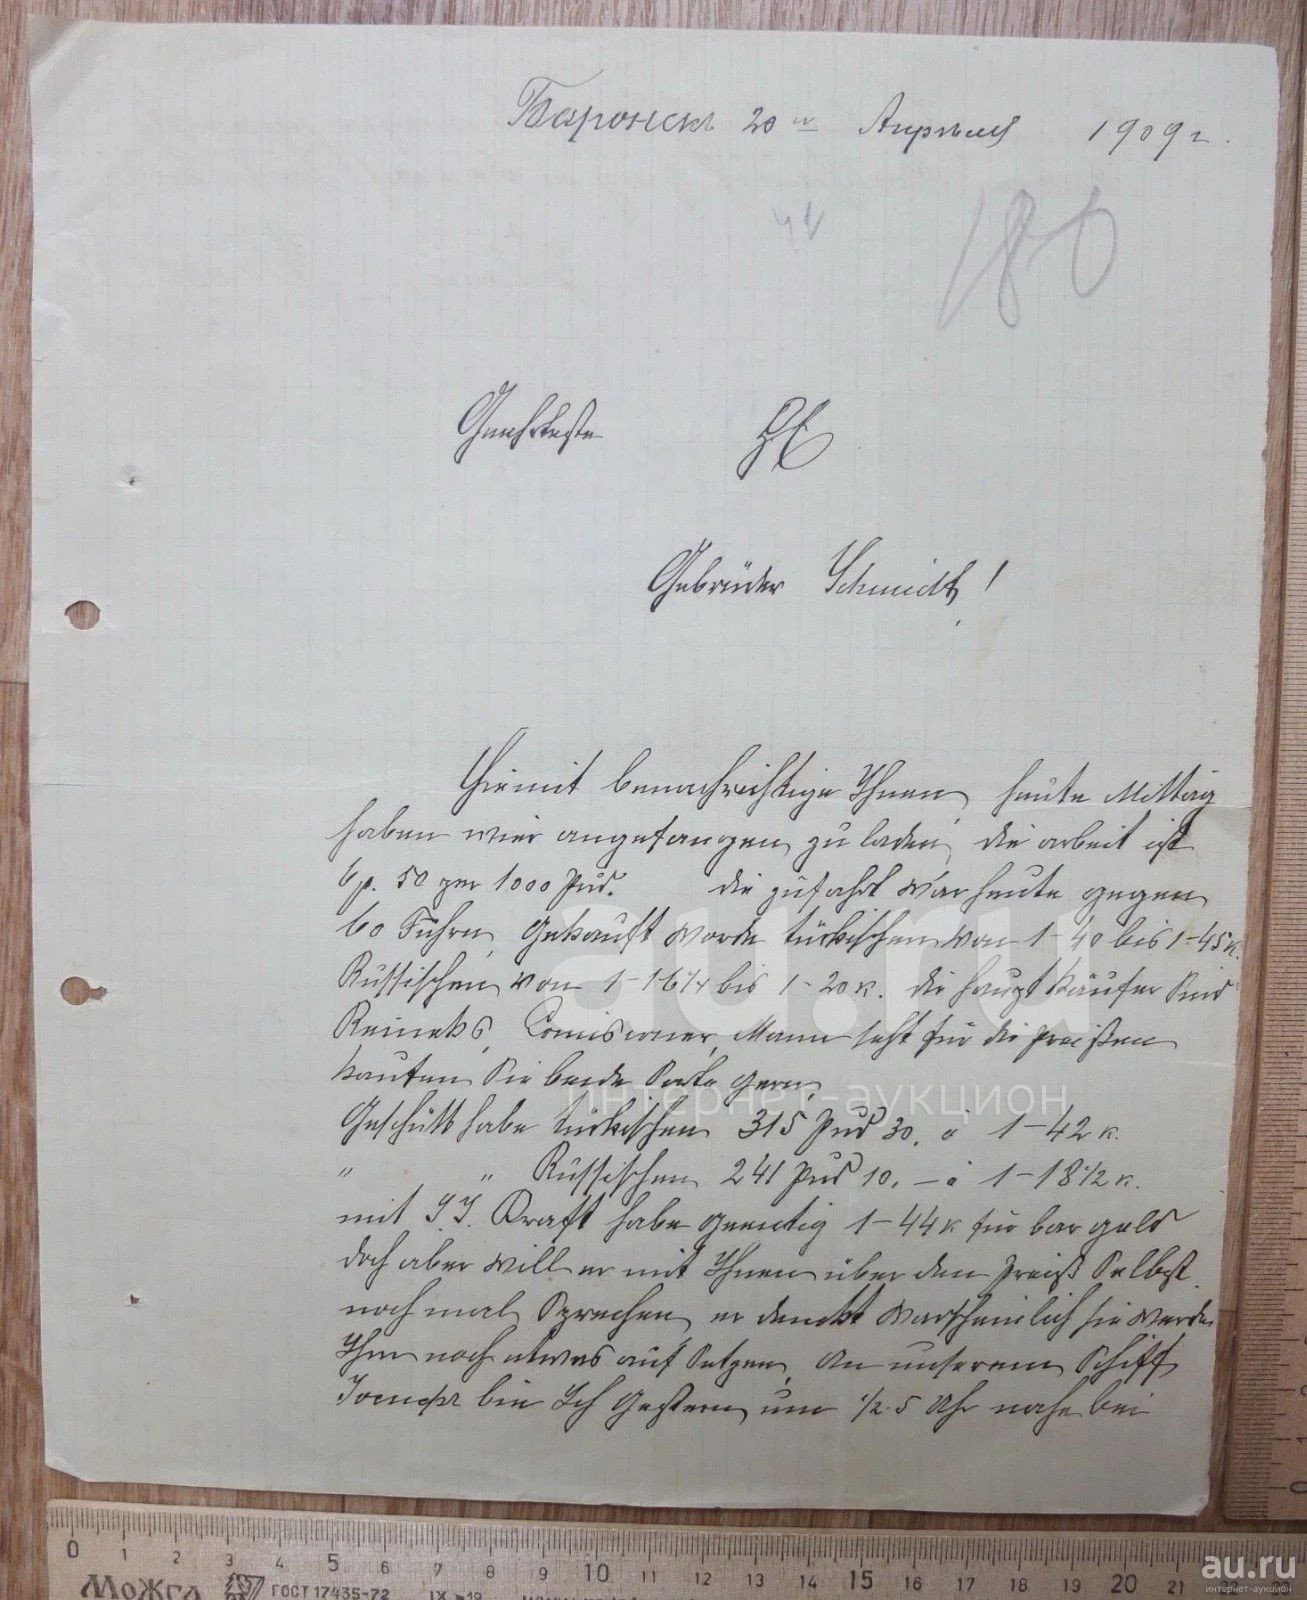 Баронскъ 20го Апрѣля 1909 г.
180
Geehrteste HE
Gebrüder Schmidt!
Hiermit benachrichtige Ihnen, heute Mittag
haben wier angefangen zu laden, die arbeit ist
6 р. 50 per 1000 Pud. die zufahrt war heute gegen
60 Fuhrn, Gekauft worde türkischen von 1-40 bis 1-45 к.
Russischen von 1-16 1/4 bis 1-20 к. die haupt Käufer Sind
Reineks, Comisioner, Mann seht für die preißen
kaufen Sie beide Sorte gern,
Geschütt habe türkischen 315 Pud 30, à 1-42 к.
" " Russischen 241 Pud 10, - à 1-18 1/2 к.
mit J. J. Kraft habe geentig 1-44 к für bar geld
doch aber will er mit Ihnen über den preiß Selbst
noch mal Sprechen, er denckt warscheinlich sie werden
Ihm noch etwas auf Setzen, An unserem Schiff
bin Ich Gestern um 1/2 5 Uhr nahe bei
au.ru
интернет-аукцион
0 1 2 3 4 5 6 7 8 9 10 11 12 13 14 15 16 17 18 19 20 21 22 23
МоЖга ГОСТ 17435-72
au.ru
интернет-аукцион